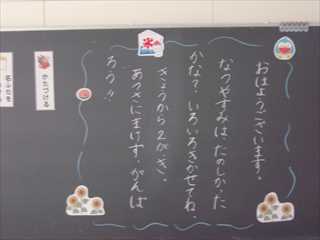 おはようございます。
なつやすみは、たのしかった
かな？いろいろきかせてね。
きょうから２がっき。
あつさにまけず、がんば
ろう!!
氷
かたづける